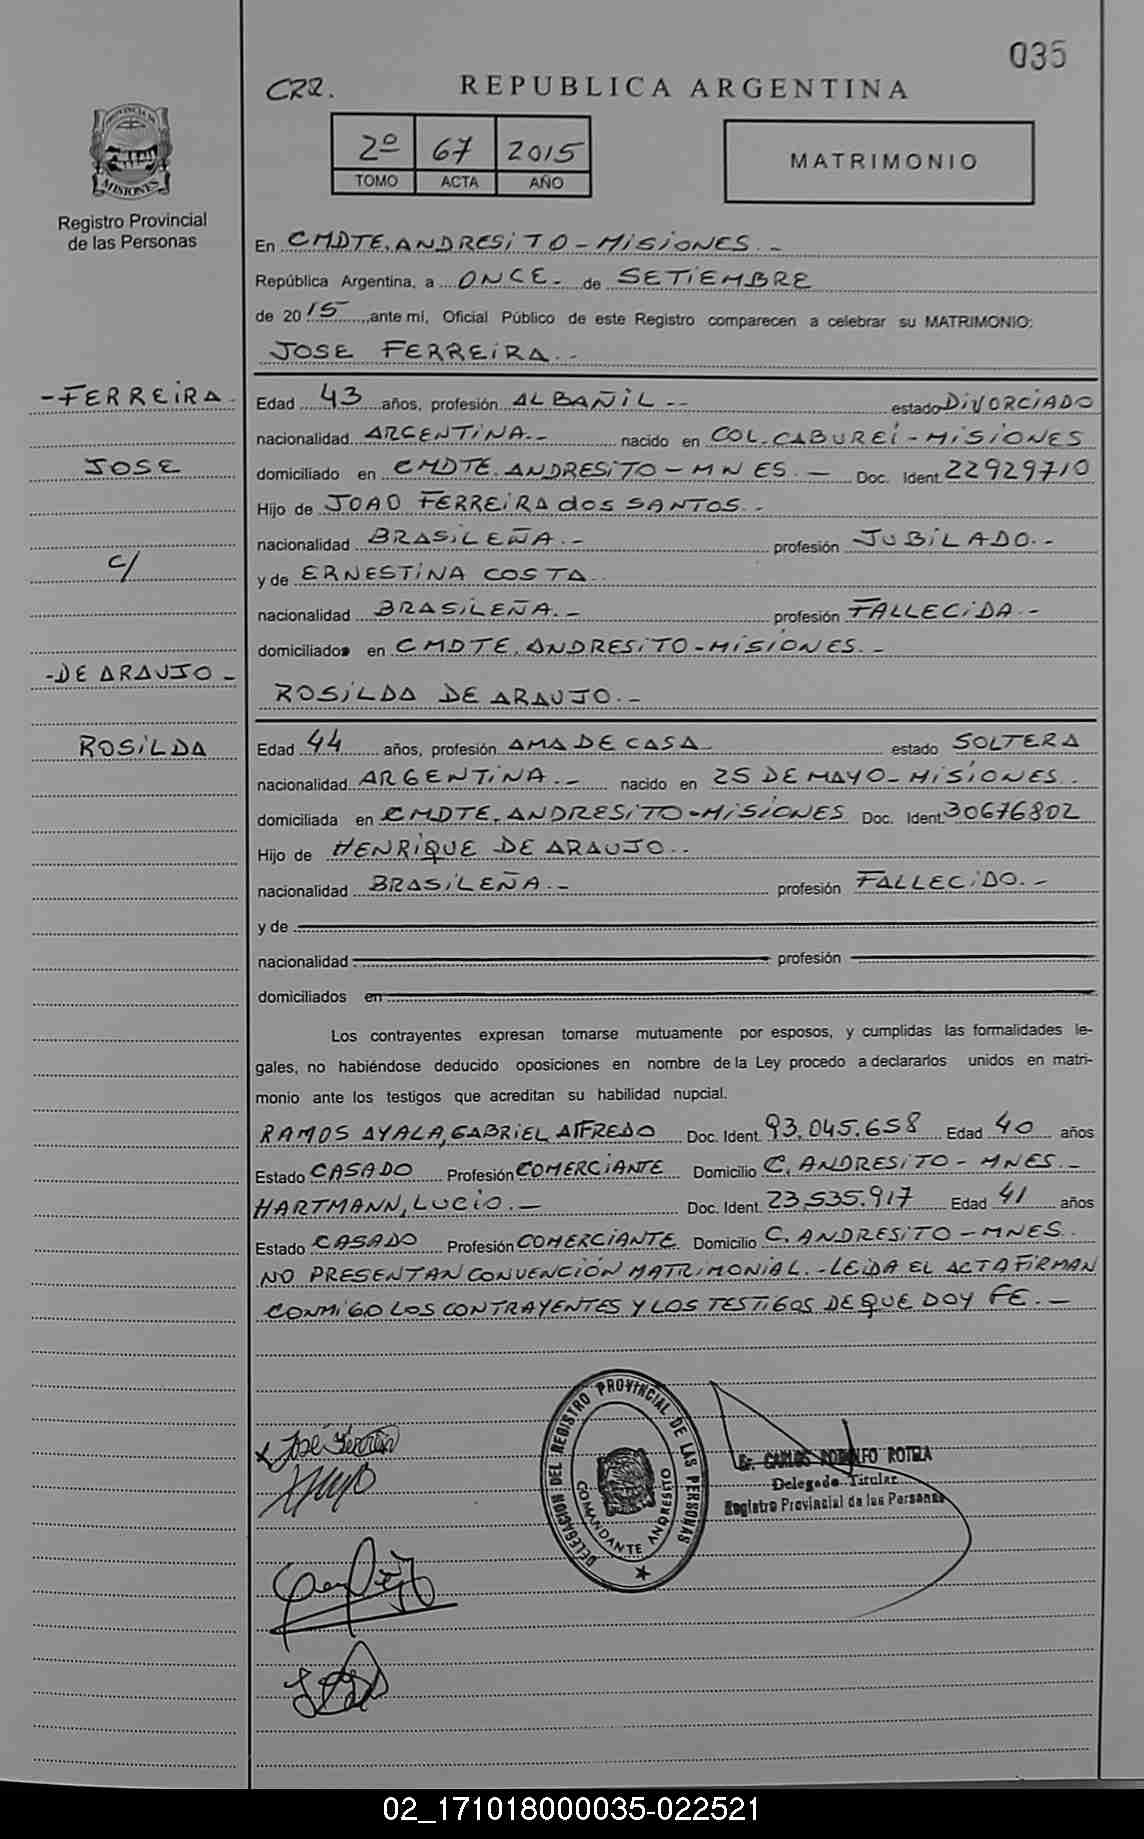 035
CRR. REPUBLICA ARGENTINA
2º 67 2015
TOMO ACTA AÑO
MATRIMONIO
PROVINCIA DE
MISIONES
Registro Provincial
de las Personas
En CMDTE. ANDRESiTO - MiSiONES. -
República Argentina, a ONCE. de SETiEMBRE
de 2015, ante mí, Oficial Público de este Registro comparecen a celebrar su MATRIMONIO:
JOSE FERREiRA. -
- FERREiRA -
JOSE
c/
- DE ARAUJO -
ROSiLDA
Edad 43 años, profesión ALBAÑiL -- estado DiVORCiADO
nacionalidad ARGENTiNA. - nacido en COL. CABUREÍ - MiSiONES
domiciliado en CMDTE. ANDRESiTO - MNES. - Doc. Ident. 22929710
Hijo de JOAO FERREiRA dos SANTOS. -
nacionalidad BRASiLEÑA. - profesión JUBiLADO. -
y de ERNESTiNA COSTA
nacionalidad BRASiLEÑA. - profesión FALLECiDA. -
domiciliados en CMDTE. ANDRESiTO - MiSiONES. -
ROSiLDA DE ARAUJO. -
Edad 44 años, profesión AMA DE CASA estado SOLTERA
nacionalidad ARGENTiNA. - nacido en 25 DE MAYO - MiSiONES.
domiciliada en CMDTE. ANDRESiTO - MiSiONES Doc. Ident. 30676802
Hijo de HENRiQUE DE ARAUJO. -
nacionalidad BRASiLEÑA. - profesión FALLECiDO. -
y de
nacionalidad profesión
domiciliados en
Los contrayentes expresan tomarse mutuamente por esposos, y cumplidas las formalidades le-
gales, no habiéndose deducido oposiciones en nombre de la Ley procedo a declararlos unidos en matri-
monio ante los testigos que acreditan su habilidad nupcial.
RAMOS AYALA, GABRiEL ALFREDO Doc. Ident. 93.045.658 Edad 40 años
Estado CASADO Profesión COMERCiANTE Domicilio C. ANDRESiTO - MNES. -
HARTMANN, LUCiO. - Doc. Ident. 23.535.917 Edad 41 años
Estado CASADO Profesión COMERCiANTE Domicilio C. ANDRESiTO - MNES.
NO PRESENTAN CONVENCiÓN MATRiMONiAL. - LEiDA EL ACTA FiRMAN
CONMiGO LOS CONTRAYENTES Y LOS TESTiGOS DE QUE DOY FE. -
DELEGACION DEL REGISTRO PROVINCIAL DE LAS PERSONAS
COMANDANTE ANDRESITO
x José Ferreira
Sr. CARLOS RODOLFO ROTELA
Delegado Titular
Registro Provincial de las Personas
02_171018000035-022521